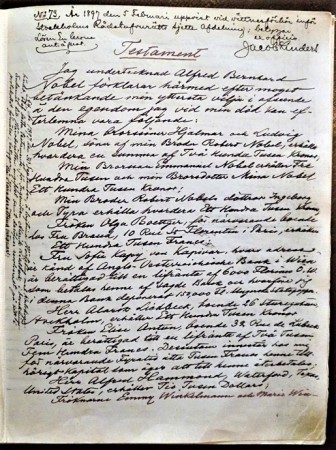 No 73. År 1897 den 5 Februari uppvist vid vittnesförhör inför
Stockholms Rådstufvurätts Sjette Afdelning; betygar
Lösen En krona
ex officio
Testament
Jag undertecknad Alfred Bernhard
Nobel förklarar härmed efter moget
betänkande min yttersta vilja i afseende
å den egendom jag vid min död kan ef-
terlemna vara följande:
Mina Brorsöner Hjalmar och Ludvig
Nobel, söner af min Broder Robert Nobel, erhålla
hvardera en summa af Två Hundra Tusen Kronor;
Min Brorson Emmanuel Nobel erhåller Tre
Hundra Tusen och min Brorsdotter Mina Nobel
Ett Hundra Tusen Kronor;
Min Broder Robert Nobels döttrar Ingeborg
och Tyra erhålla hvardera Ett Hundra Tusen Kronor
Fröken Olga Boettger, för närvarande boende
hos Fru Brand, 10 Rue St Florentin i Paris, erhåller
Ett Hundra Tusen Francs;
Fru Sofie Kapy von Kapivar, hvars adress
är känd af Anglo-Oesterreichische Bank i Wien
är berättigad till en lifränta af 6000 Florins Ö.W.
som betalas henne af sagde Bank och hvarför jag
i denna Bank deponerat 150,000 Fl. i Ungerska statspapper
Herr Alarik Liedbeck, boende 26 Sturegatan,
Stockholm, erhåller Ett Hundra Tusen Kronor
Fröken Elise Antun, boende 32 Rue de Lubeck,
Paris, är berättigad till en lifränta af Två Tusen
Fem Hundra Francs. Dessutom innestår hos mig
för närvarande Fyratio åtta Tusen Francs henne till-
hörigt Kapital som
Herr Alfred Hammond, Waterford, Texas,
United States, erhåller Tio Tusen Dollars;
Fröknarne Emmy Winkelmann och Marie Win-